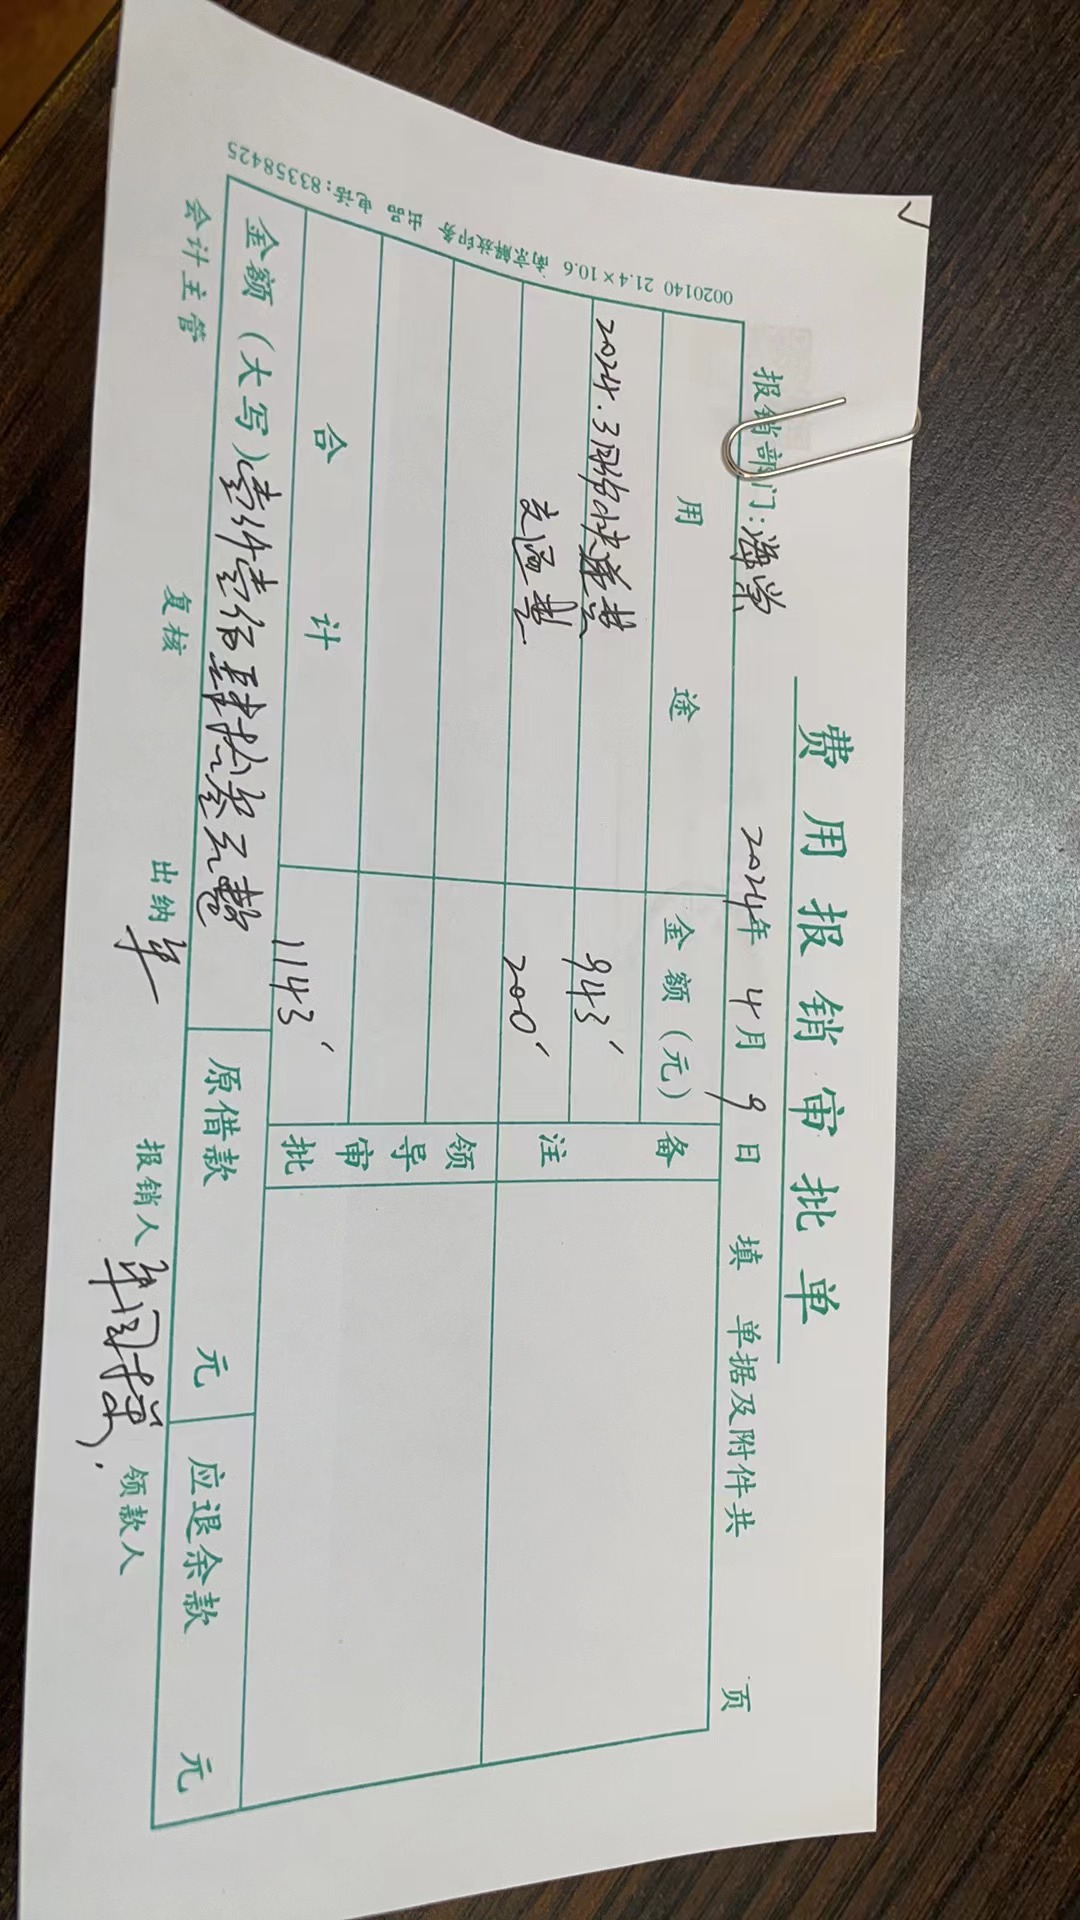 费用报销审批单
报销部门:海棠 2024年 4月 9日 填 单据及附件共 页
用途 金额(元) 备注
2024.3月份快递费 943
交通费 200
领导审批
合计 1143
金额(大写)壹仟壹佰肆拾叁元整 原借款 元 应退余款 元
会计主管 复核 出纳 报销人 领款人
0020140 21.4×10.6 南京解放印务 出品 电话:83358425